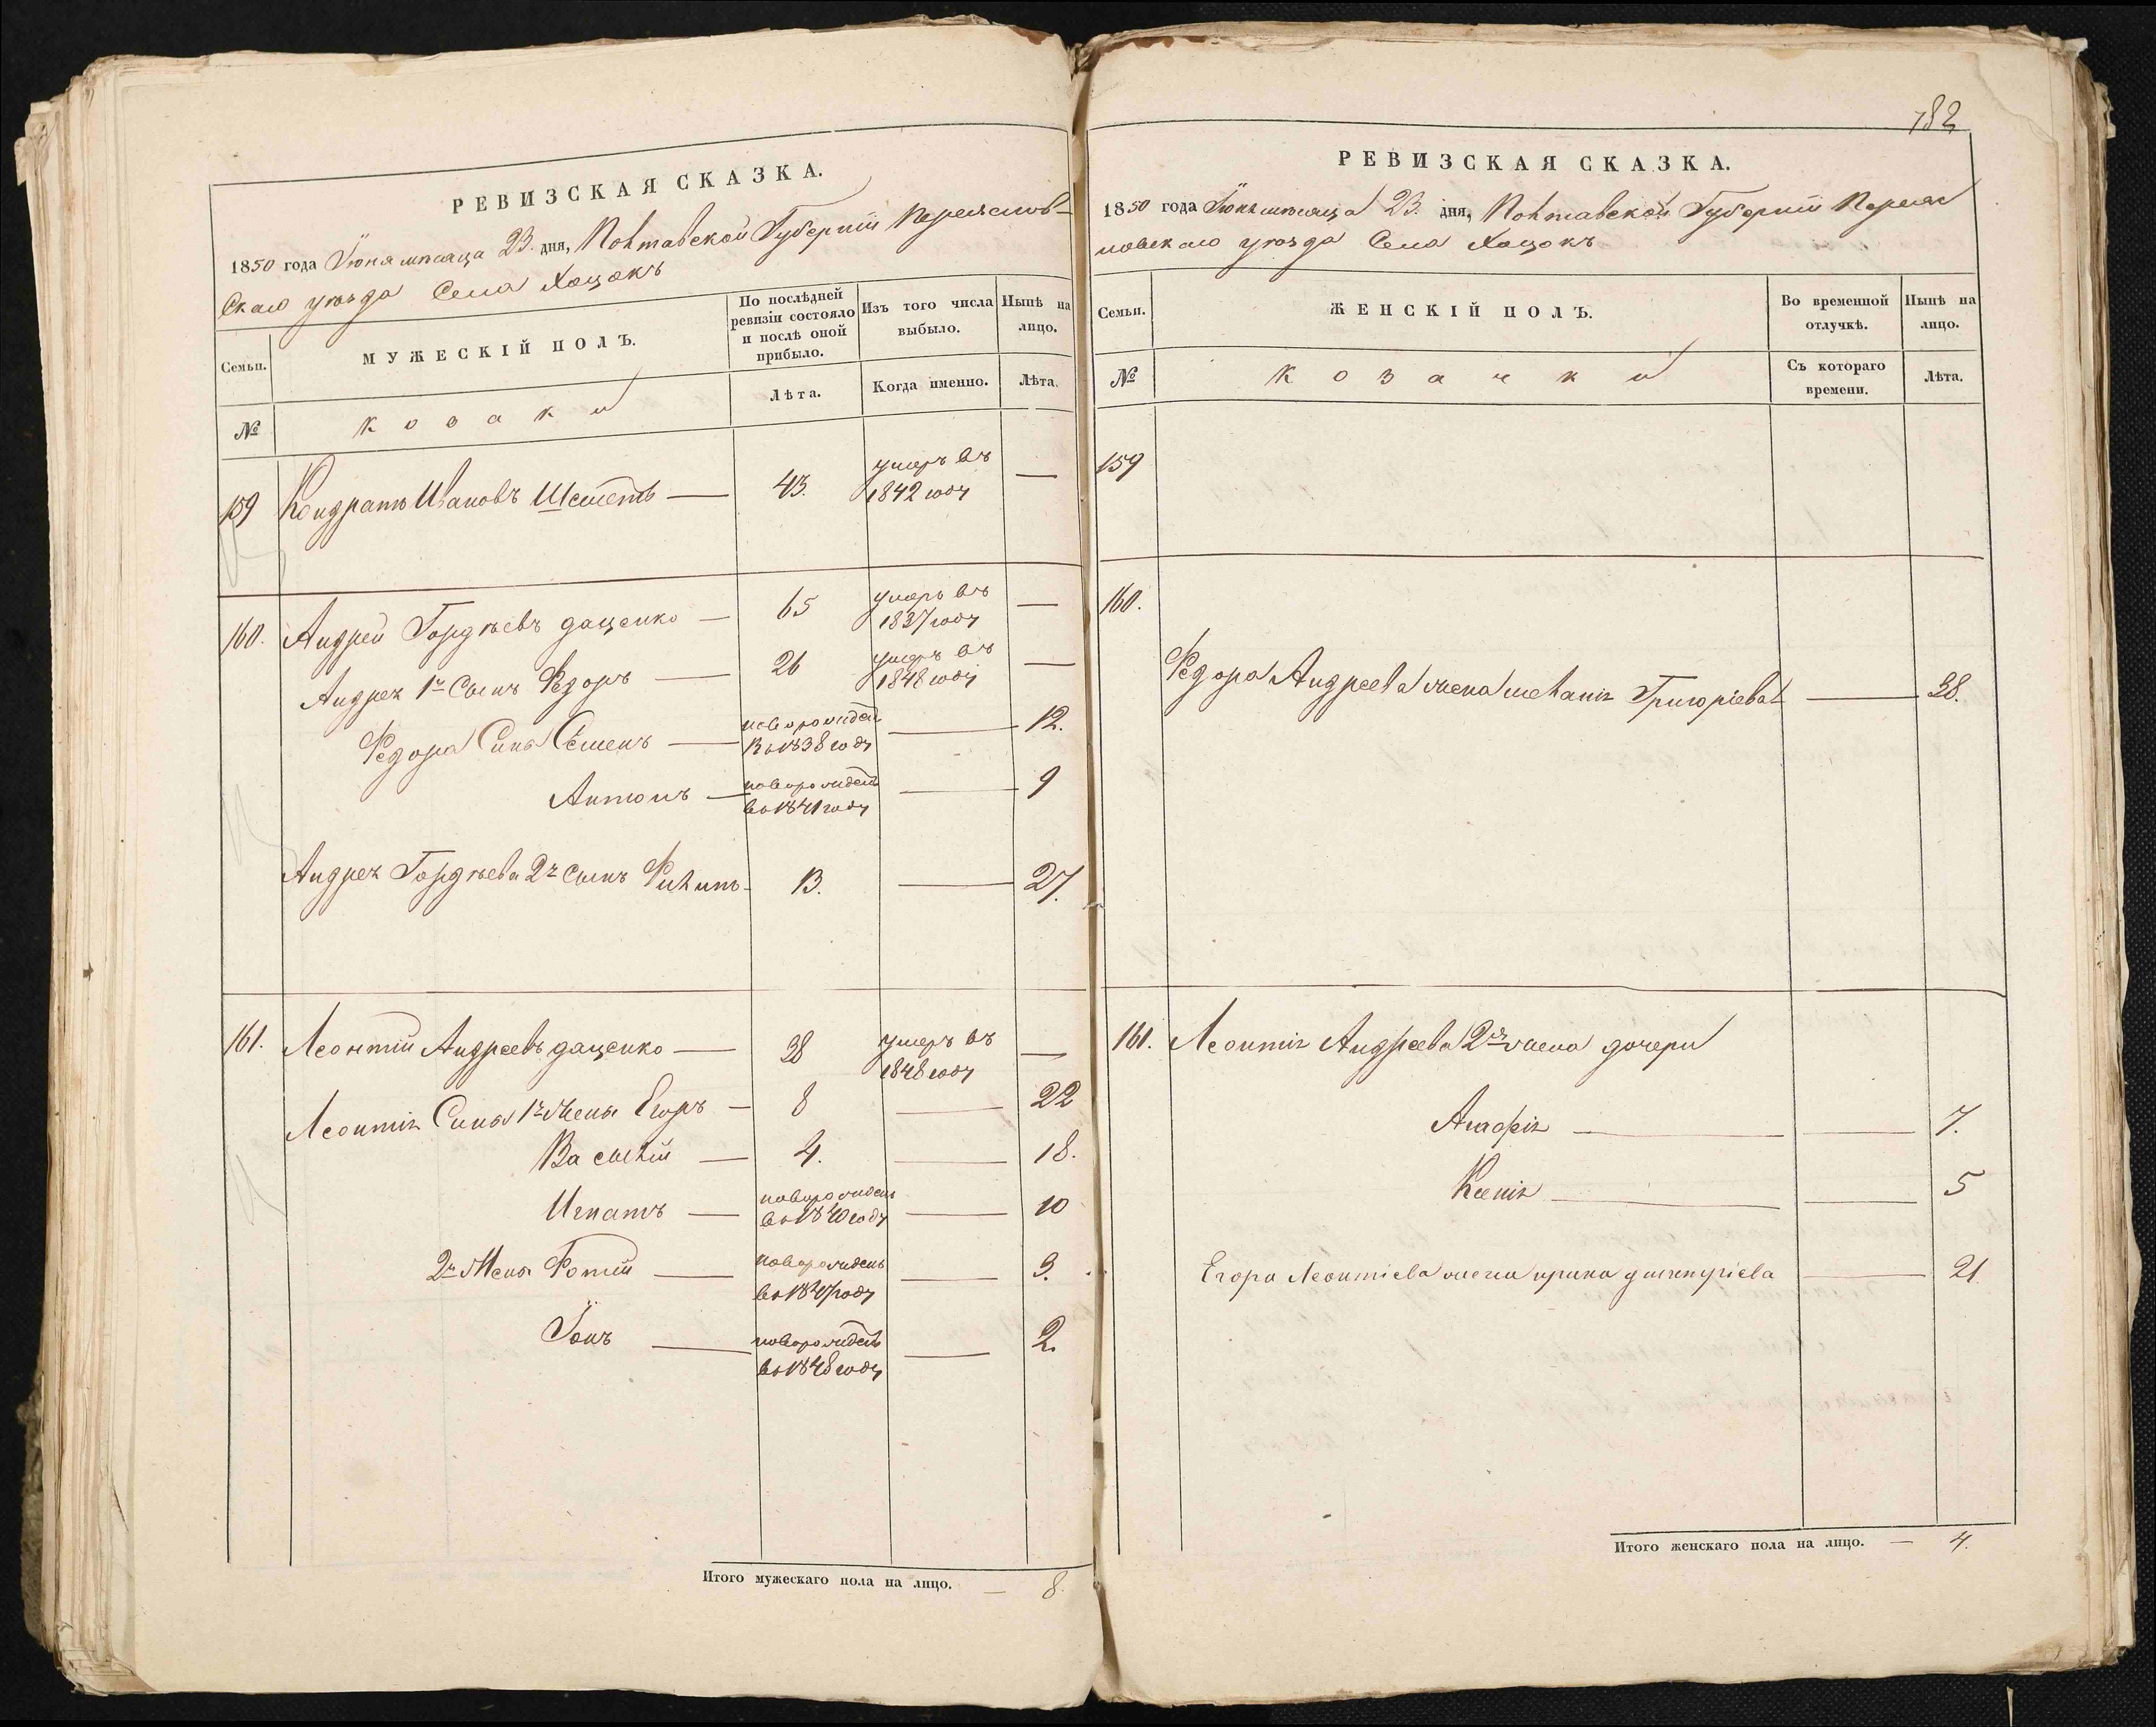 РЕВИЗСКАЯ СКАЗКА.
1850 года Іюня мѣсяца 23. дня, Полтавской Губерніи Переяслов-
скаго уѣзда Села Хоцокъ
Семьи.
МУЖЕСКІЙ ПОЛЪ.
По послѣдней ревизіи состояло и послѣ оной прибыло.
Изъ того числа выбыло.
Нынѣ на лицо.
№
козаки
Лѣта.
Когда именно.
Лѣта.
159 Кондратъ Ивановъ — 43. умеръ въ 1842 году —
160. Андрей Гордѣевъ даценко — 65 умеръ въ 1837 году —
Андрея 1й Сынъ Федоръ — 26 умеръ въ 1848 году —
Федора Сынъ Семенъ — новорожден въ 1838 году — 12.
Антонъ — новорожден въ 1841 году — 9
Андрея Гордѣева 2й Сынъ Филипъ - 13. — 27.
161. Леонтій Андреевъ даценко — 38 умеръ въ 1848 году —
Леонтія Сыны 1й жены Егоръ — 8 — 22
Василій — 4. — 18.
Игнатъ — новорожденъ въ 1840 году — 10
2й жены Фотій — новорожденъ въ 1847 году — 3.
Іонъ — новорожден въ 1848 году — 2.
Итого мужескаго пола на лицо. — 8.
182
РЕВИЗСКАЯ СКАЗКА.
1850 года Іюня мѣсяца 23. дня, Полтавской Губерніи Переяс
ловскаго уѣзда Села Хоцокъ
Семьи.
ЖЕНСКІЙ ПОЛЪ.
Во временной отлучкѣ.
Нынѣ на лицо.
№
козачки
Съ котораго времени.
Лѣта.
159
160.
Федора Андреева жена Меланія Григоріева — 38.
161. Леонтія Андреева 2й жены дочери
Агафія — — 7.
Ксенія — — 5
Егора Леонтіева жена ирина дмитріева — 21.
Итого женскаго пола на лицо. — 4.